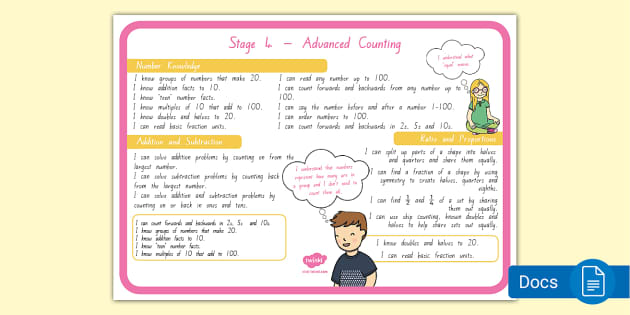 Stage 4 – Advanced Counting
I understand what
"equal" means.
Number Knowledge
I know groups of numbers that make 20.
I know addition facts to 10.
I know "teen" number facts.
I know multiples of 10 that add to 100.
I know doubles and halves to 20.
I can read basic fraction units.
I can read any number up to 100.
I can count forwards and backwards from any number up to
100.
I can say the number before and after a number 1-100.
I can order numbers to 100.
I can count forwards and backwards in 2s, 5s and 10s.
Addition and Subtraction
I can solve addition problems by counting on from the
largest number.
I can solve subtraction problems by counting back
from the largest number.
I can solve addition and subtraction problems by
counting on or back in ones and tens.
I can count forwards and backwards in 2s, 5s and 10s.
I know groups of numbers that make 20.
I know addition facts to 10.
I know "teen" number facts.
I know multiples of 10 that add to 100.
I understand that numbers
represent how many are in
a group and I don't need to
count them all.
twinkl
Ratios and Proportions
I can split up parts of a shape into halves
and quarters and share them equally.
I can find a fraction of a shape by using
symmetry to create halves, quarters and
eighths.
I can find ½ and ¼ of a set by sharing
them out equally.
I can use skip counting, known doubles and
halves to help share sets out equally.
I know doubles and halves to 20.
I can read basic fraction units.
Docs